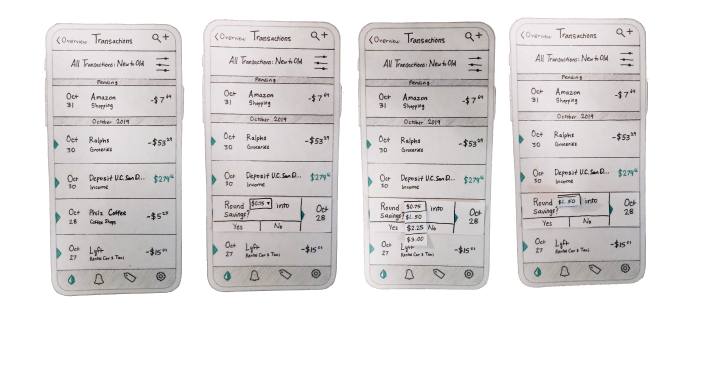 < Overview Transactions
All Transactions: New to Old
Pending
Oct 31 Amazon -$7
Shopping
October 2019
Oct 30 Ralphs -$53
Groceries
Oct 30 Deposit U.C. San D... $279
Income
Oct 28 Philz Coffee -$5
Coffee Shops
Oct 27 Lyft -$15
Rental Car & Taxi
< Overview Transactions
All Transactions: New to Old
Pending
Oct 31 Amazon -$7
Shopping
October 2019
Oct 30 Ralphs -$53
Groceries
Oct 30 Deposit U.C. San D... $279
Income
Round $0.75 into
Savings? Oct 28
Yes No
Oct 27 Lyft -$15
Rental Car & Taxi
< Overview Transactions
All Transactions: New to Old
Pending
Oct 31 Amazon -$7
Shopping
October 2019
Oct 30 Ralphs -$53
Groceries
Oct 30 Deposit U.C. San D... $279
Income
Round $0.75 into
Savings? $1.50 Oct 28
Yes $2.25 No
$3.00
Oct 27 Lyft -$15
Rental Car & Taxi
< Overview Transactions
All Transactions: New to Old
Pending
Oct 31 Amazon -$7
Shopping
October 2019
Oct 30 Ralphs -$53
Groceries
Oct 30 Deposit U.C. San D... $279
Income
Round $1.50 into
Savings? Oct 28
Yes No
Oct 27 Lyft -$15
Rental Car & Taxi